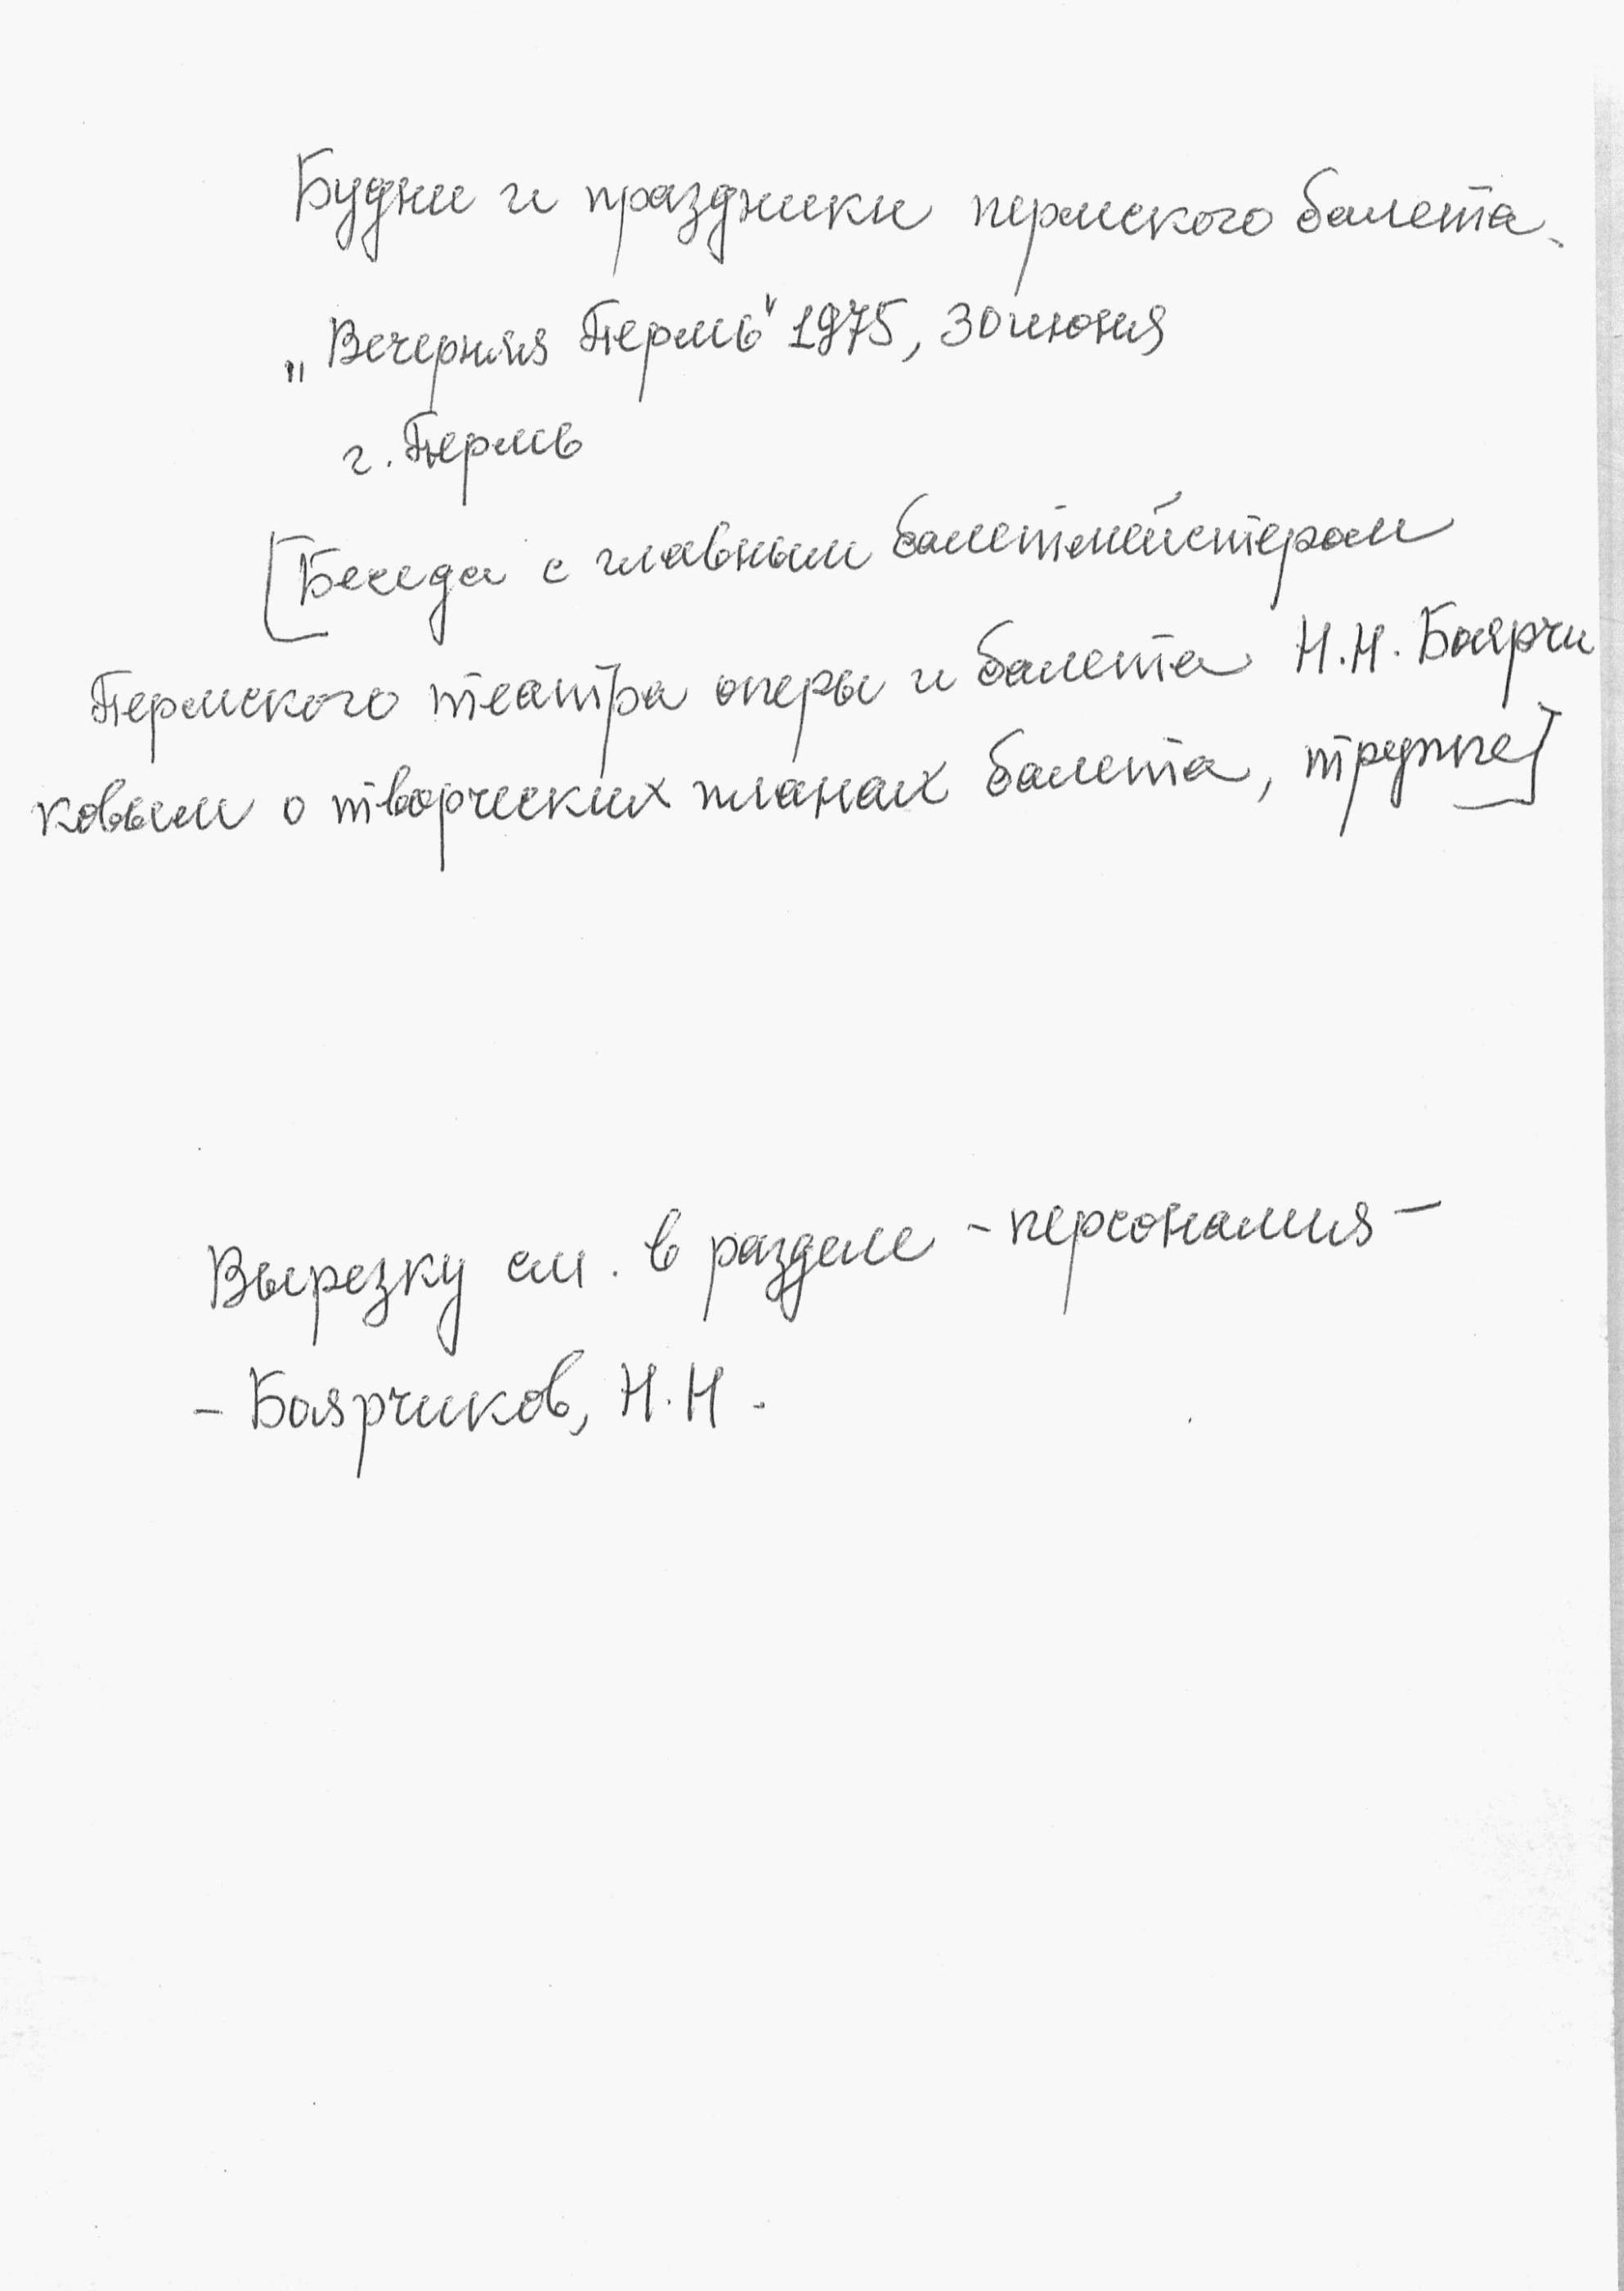 Будни и праздники пермского балета.
„Вечерняя Пермь" 1975, 30 июня
г. Пермь
[Беседа с главным балетмейстером
Пермского театра оперы и балета Н.Н. Боярчи
ковым о творческих планах балета, труппе]
Вырезку см. в разделе - персоналия -
- Боярчиков, Н.Н.